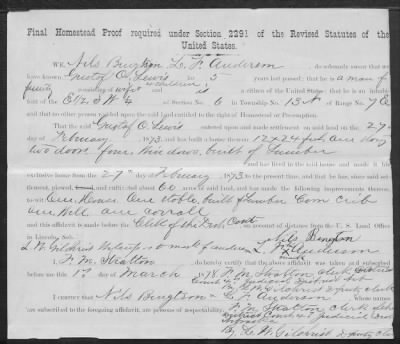 Final Homestead Proof required under Section 2291 of the Revised Statutes of the
United States.
WE, Nils Bengtson L. P. Anderson, do solemnly swear that we
have known Gustof O. Lewis for 5 years last passed; that he is a man of
family consisting of wife & children is a citizen of the United States; that he is an inhabi-
tant of the E 1/2 S W 4 of Section No. 6 in Township No. 15 N of Range No. 7 E
and that no other person resided upon the said land entitled to the right of Homestead or Preemption.
That the said Gustof O. Lewis entered upon and made settlement on said land on the 27
day of February, 1873 and has built a house thereon 12 x 24 feet, one story
two doors four windows, built of Lumber
and has lived in the said house and made it his
exclusive home from the 27 day of February, 1873 to the present time, and that he has, since said set-
tlement, plowed, and cultivated about 60 acres of said land, and has made the following improvements thereon,
to wit: One House One Stable, built of Lumber Corn crib
one Well one corrall
and this affidavit is made before the Clerk of the Dist Court, on account of distance from the U. S. Land Office
in Lincoln, Neb. Nils Bengtson
L. W. Gilchrist Witness to mark of Anderson L. P. Anderson
mark
I, F. M. Stratton, do hereby certify that the above affidavit was taken and subscribed
before me this 1st day of March 1878. F. M. Stratton clerk District
Court 4th Judicial District Neb
By L. W. Gilchrist Deputy clerk
I CERTIFY that Nils Bengtson & L. P. Anderson whose names
are subscribed to the foregoing affidavit, are persons of respectability. F. M. Stratton clerk
District Court 4th Judicial District
By L. W. Gilchrist Deputy Clerk